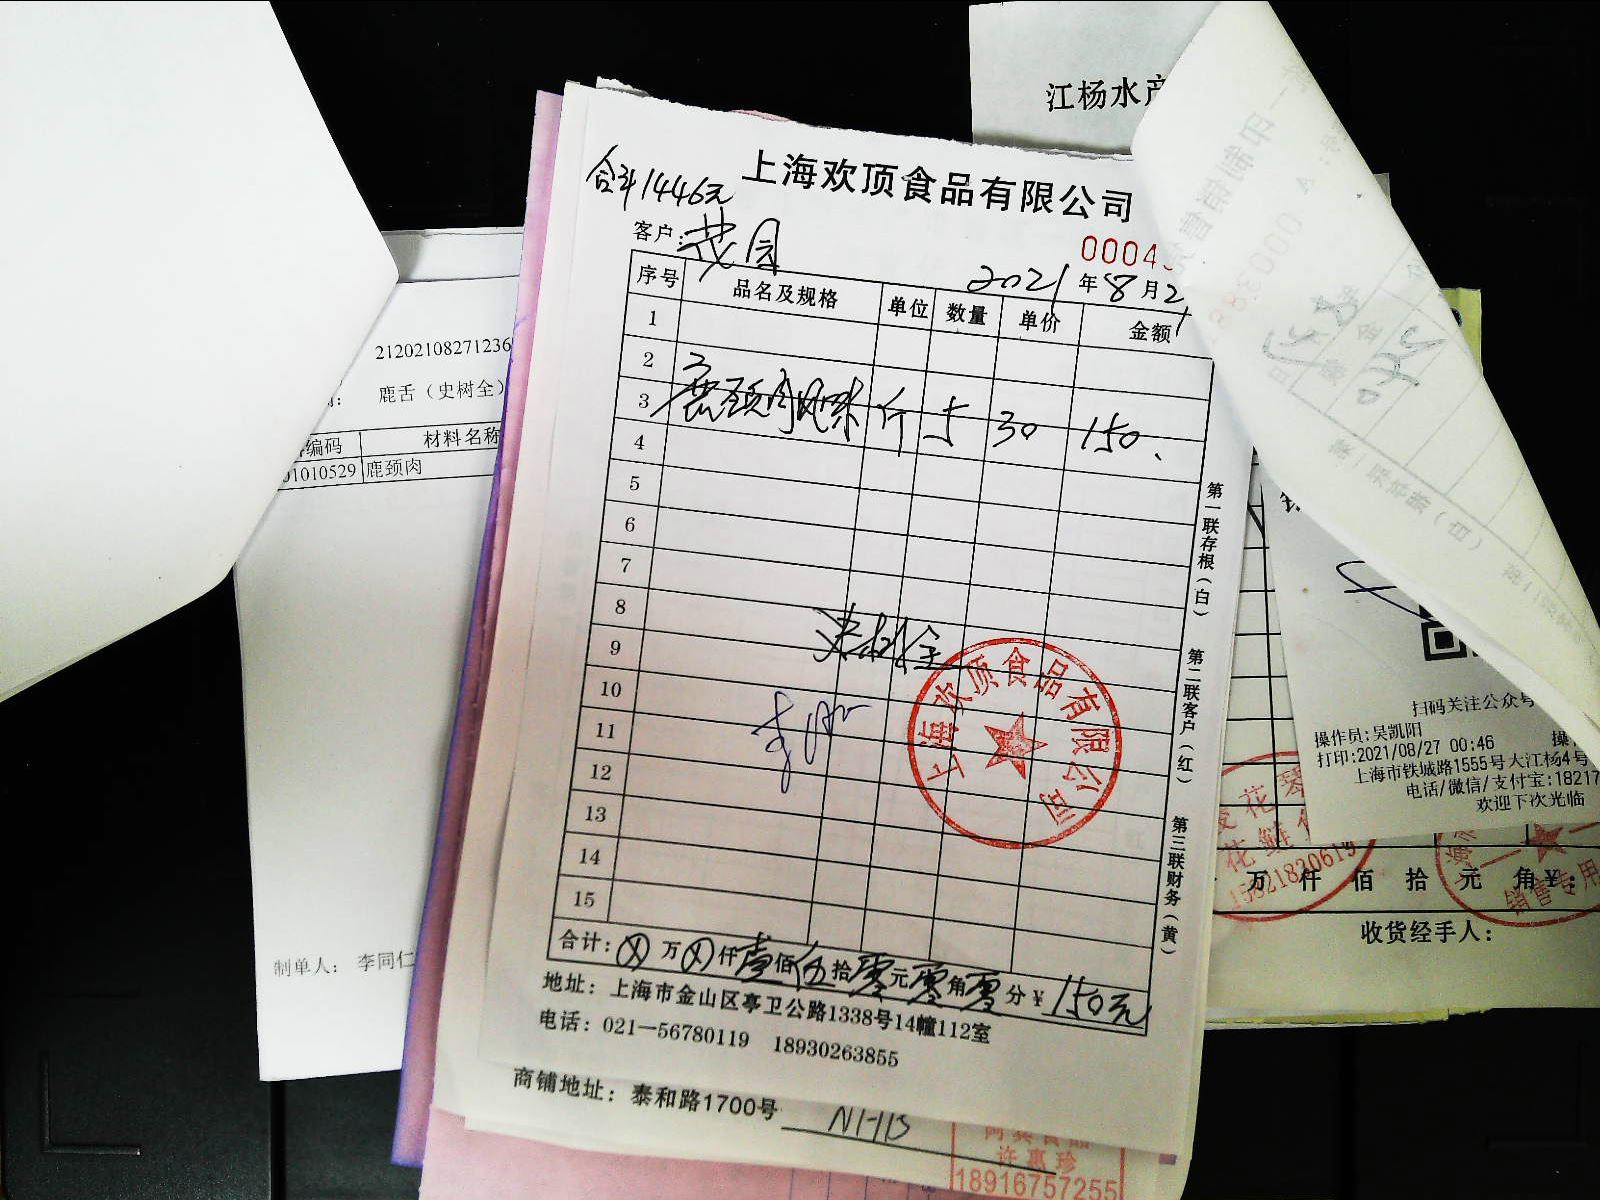 江杨水产
合计1446元
上海欢顶食品有限公司
客户：花园
00043
2021年8月2
序号 品名及规格 单位 数量 单价 金额
1
2
3 鹿颈肉风味 斤 5 30 150.
4
5
6
7
8
9
10
11
12
13
14
15
史树全
上海欢顶食品有限公司
合计：⊗万⊗仟壹佰伍拾零元零角零分￥150元
地址：上海市金山区亭卫公路1338号14幢112室
电话：021—56780119 18930263855
商铺地址：泰和路1700号
第一联存根（白） 第二联客户（红） 第三联财务（黄）
21202108271236
鹿舌（史树全）
编码 材料名称
01010529 鹿颈肉
制单人： 李同仁
扫码关注公众号
操作员:吴凯阳
打印:2021/08/27 00:46
上海市铁城路1555号大江杨4号
电话/微信/支付宝:18217
欢迎下次光临
15821830619
销售专用
万 仟 佰 拾 元 角 ￥：
收货经手人：
许惠珍
18916757255